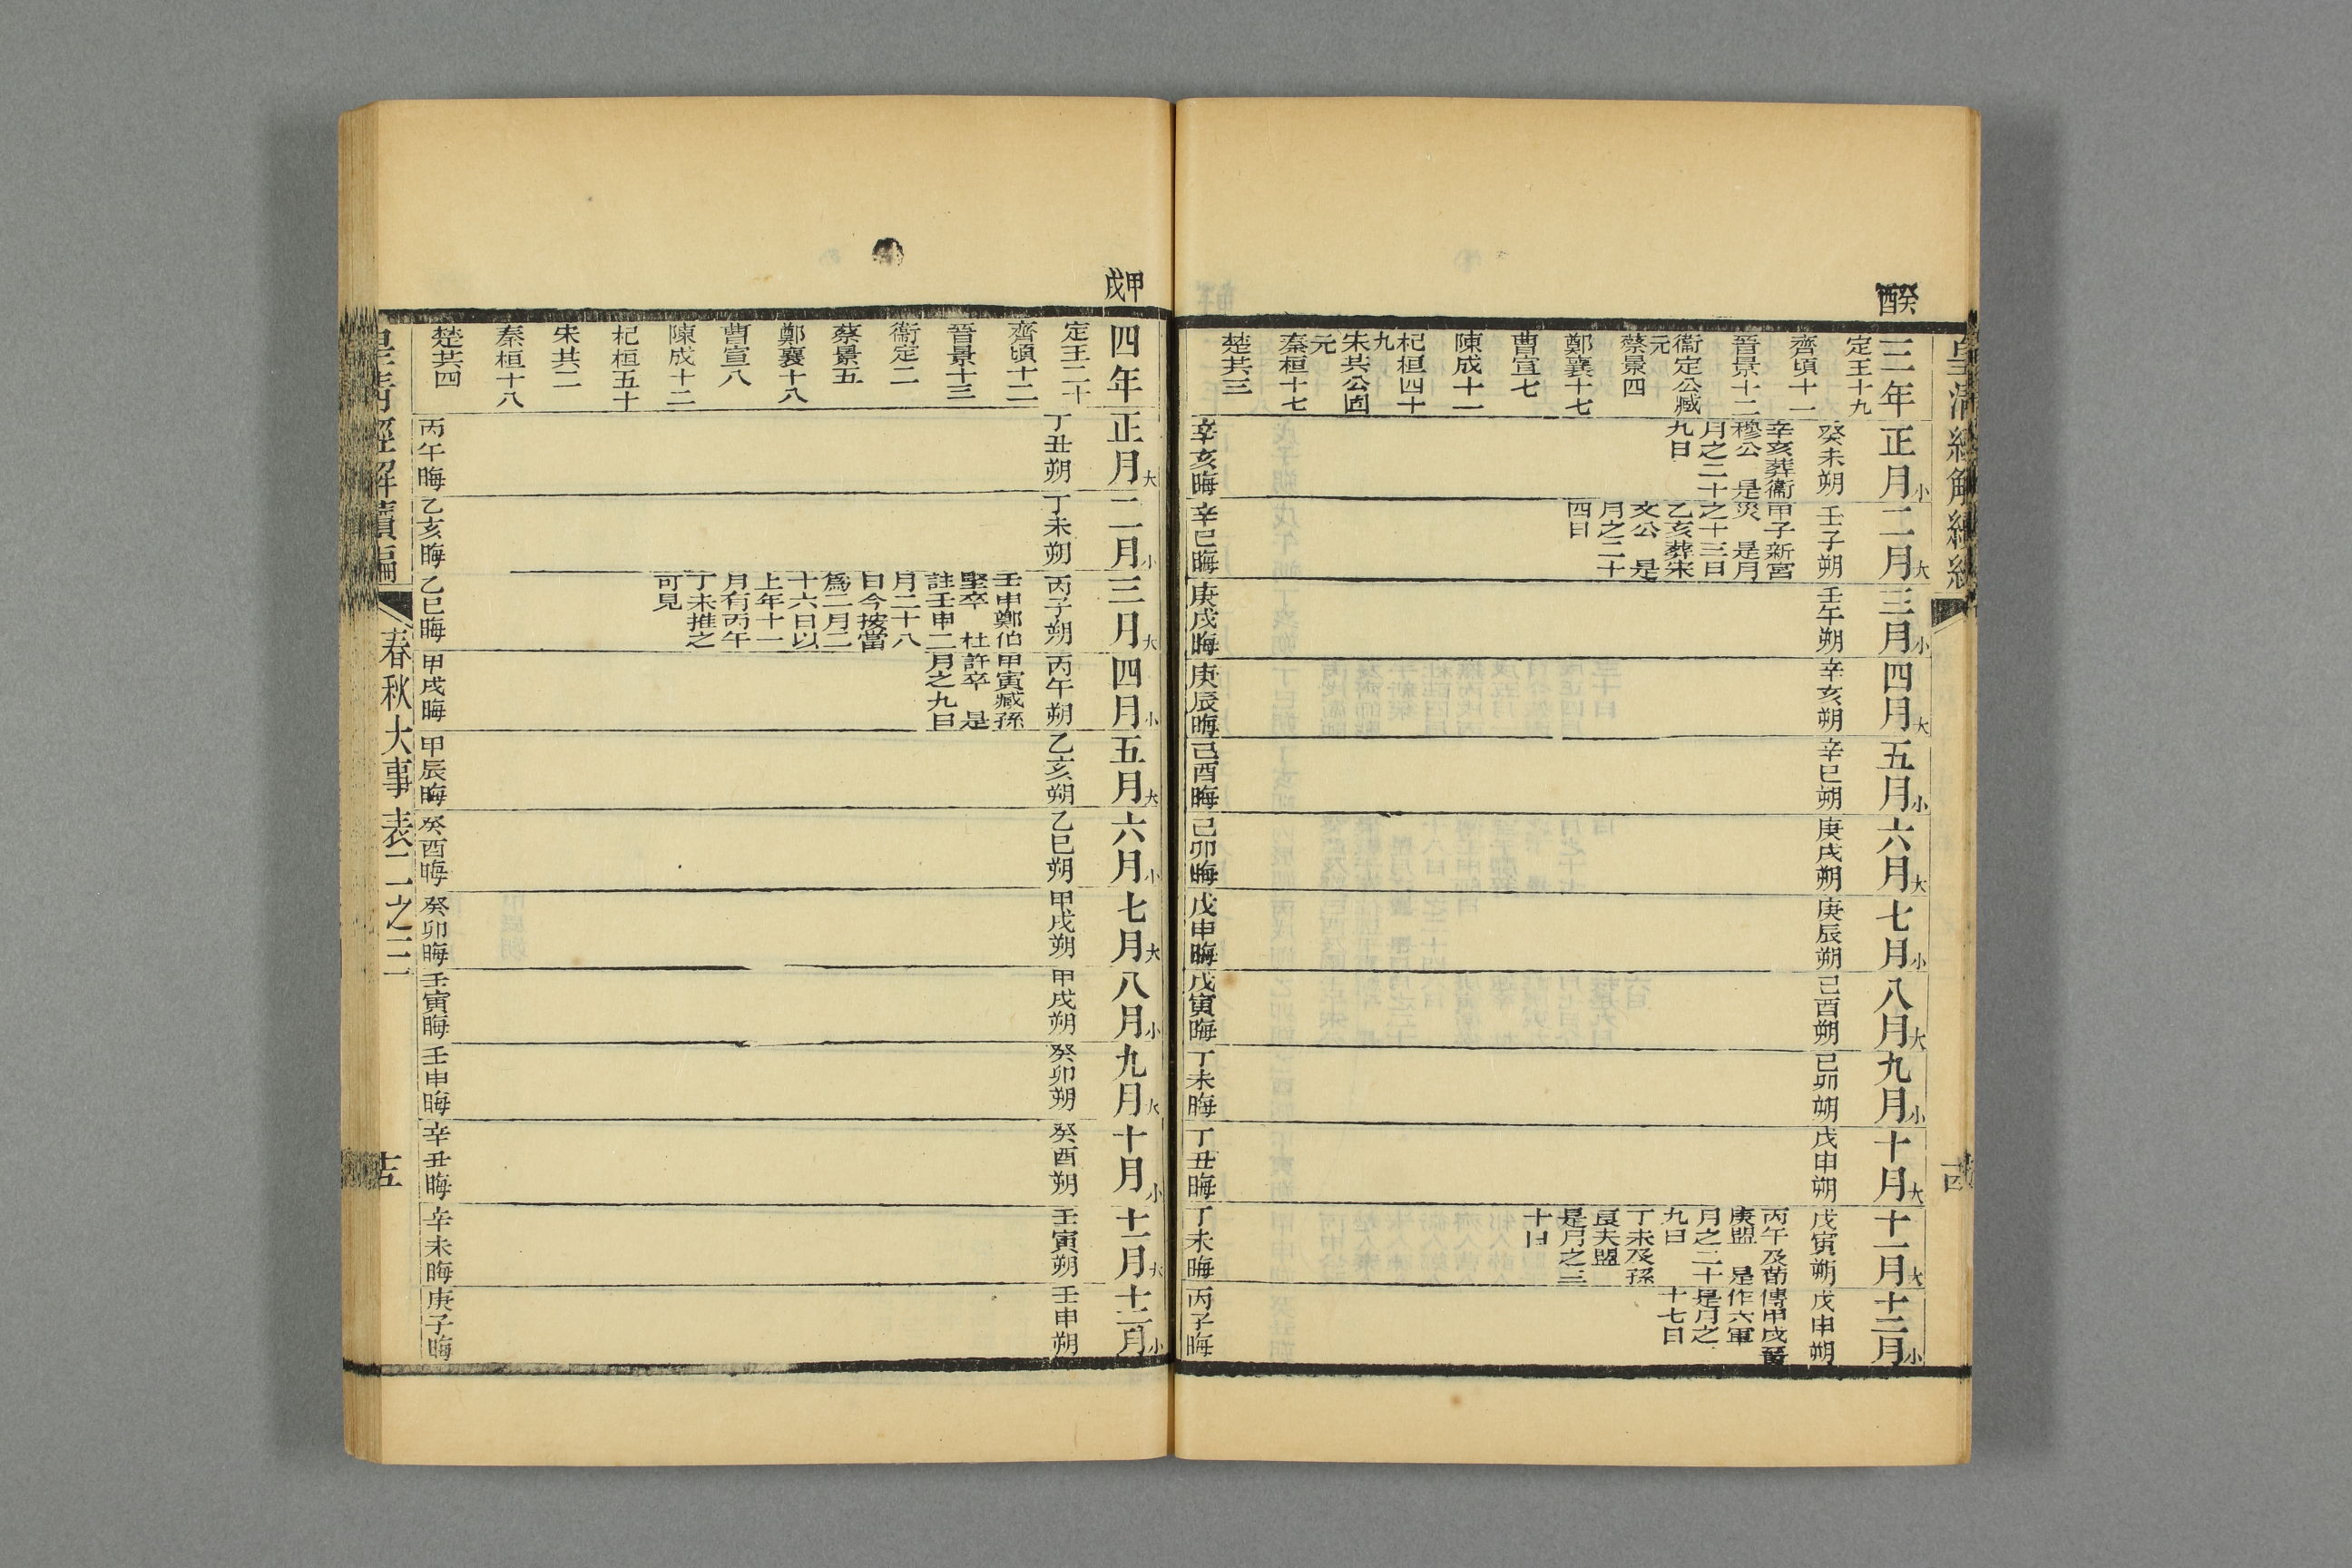 癸酉
三年
定王十九
齊頃十一
晉景十二
衞定公臧
元
蔡景四
鄭襄十七
曹宣七
陳成十一
杞桓四十
九
宋共公固
元
秦桓十七
楚共三
正月小
癸未朔
辛亥葬衞
穆公 是
月之二十
九日
辛亥晦
二月大
壬子朔
甲子新宮
災 是月
之十三日
乙亥葬宋
文公 是
月之二十
四日
辛巳晦
三月小
壬午朔
庚戌晦
四月大
辛亥朔
庚辰晦
五月小
辛巳朔
己酉晦
六月大
庚戌朔
己卯晦
七月小
庚辰朔
戊申晦
八月大
己酉朔
戊寅晦
九月小
己卯朔
丁未晦
十月大
戊申朔
丁丑晦
十一月大
戊寅朔
丙午及荀
庚盟 是
月之二十
九日
丁未及孫
良夫盟
是月之三
十日
丁未晦
十二月小
戊申朔
傳甲戌晉
作六軍
是月之
十七日
丙子晦
皇清經解續
甲戌
四年
定王二十
齊頃十二
晉景十三
衞定二
蔡景五
鄭襄十八
曹宣八
陳成十二
杞桓五十
宋共二
秦桓十八
楚共四
正月大
丁丑朔
丙午晦
二月小
丁未朔
乙亥晦
三月大
丙子朔
壬申鄭伯
堅卒 杜
註壬申二
月二十八
日今按當
爲二月二
十六日以
上年十一
月有丙午
丁未推之
可見
乙巳晦
四月小
丙午朔
甲寅臧孫
許卒 是
月之九日
甲戌晦
五月大
乙亥朔
甲辰晦
六月小
乙巳朔
癸酉晦
七月大
甲戌朔
癸卯晦
八月小
甲戌朔
壬寅晦
九月大
癸卯朔
壬申晦
十月小
癸酉朔
辛丑晦
十一月大
壬寅朔
辛未晦
十二月小
壬申朔
庚子晦
皇清經解續編
春秋大事表二之三
十五